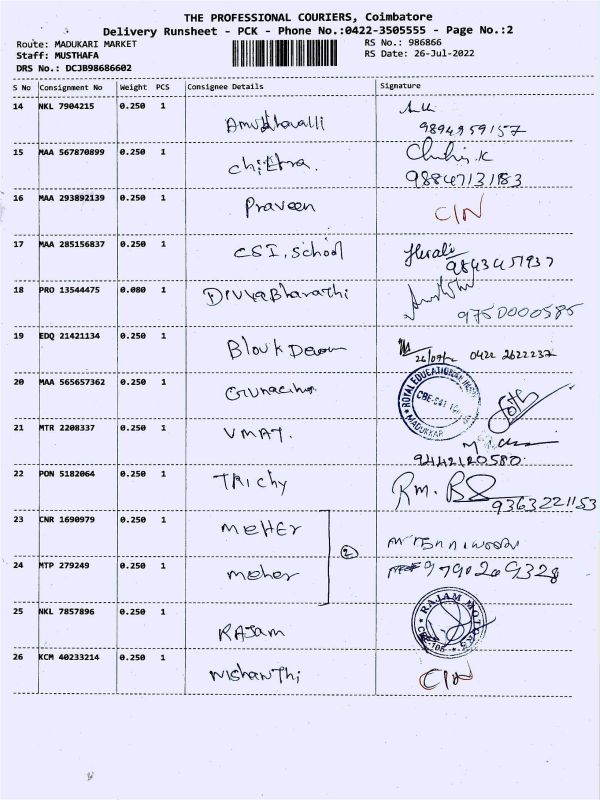 THE PROFESSIONAL COURIERS, Coimbatore
Delivery Runsheet - PCK - Phone No.:0422-3505555 - Page No.:2
Route: MADUKARI MARKET RS No.: 986866
Staff: MUSTHAFA RS Date: 26-Jul-2022
DRS No.: DCJB98686602
S No Consignment No Weight PCS Consignee Details Signature
14 NKL 7904215 0.250 1
9894959157
15 MAA 567870899 0.250 1 Chithra.
9884713183
16 MAA 293892139 0.250 1 Praveen C/N
17 MAA 285156837 0.250 1 CSI. School
9843457937
18 PRO 13544475 0.080 1 DivyaBharathi
9750000585
19 EDQ 21421134 0.250 1
0422 2622237
20 MAA 565657362 0.250 1
ROYAL EDUCATIONAL
MADUKKAR
21 MTR 2208337 0.250 1 VMAT.
9442120580
22 PON 5182064 0.250 1 TRichy Rm. B
9363221153
23 CNR 1690979 0.250 1 MEHER
2
24 MTP 279249 0.250 1 meher 9790209328
25 NKL 7857896 0.250 1 RAJam
RAJAM MOTORS
CBE-105
26 KCM 40233214 0.250 1 NishanThi C/N